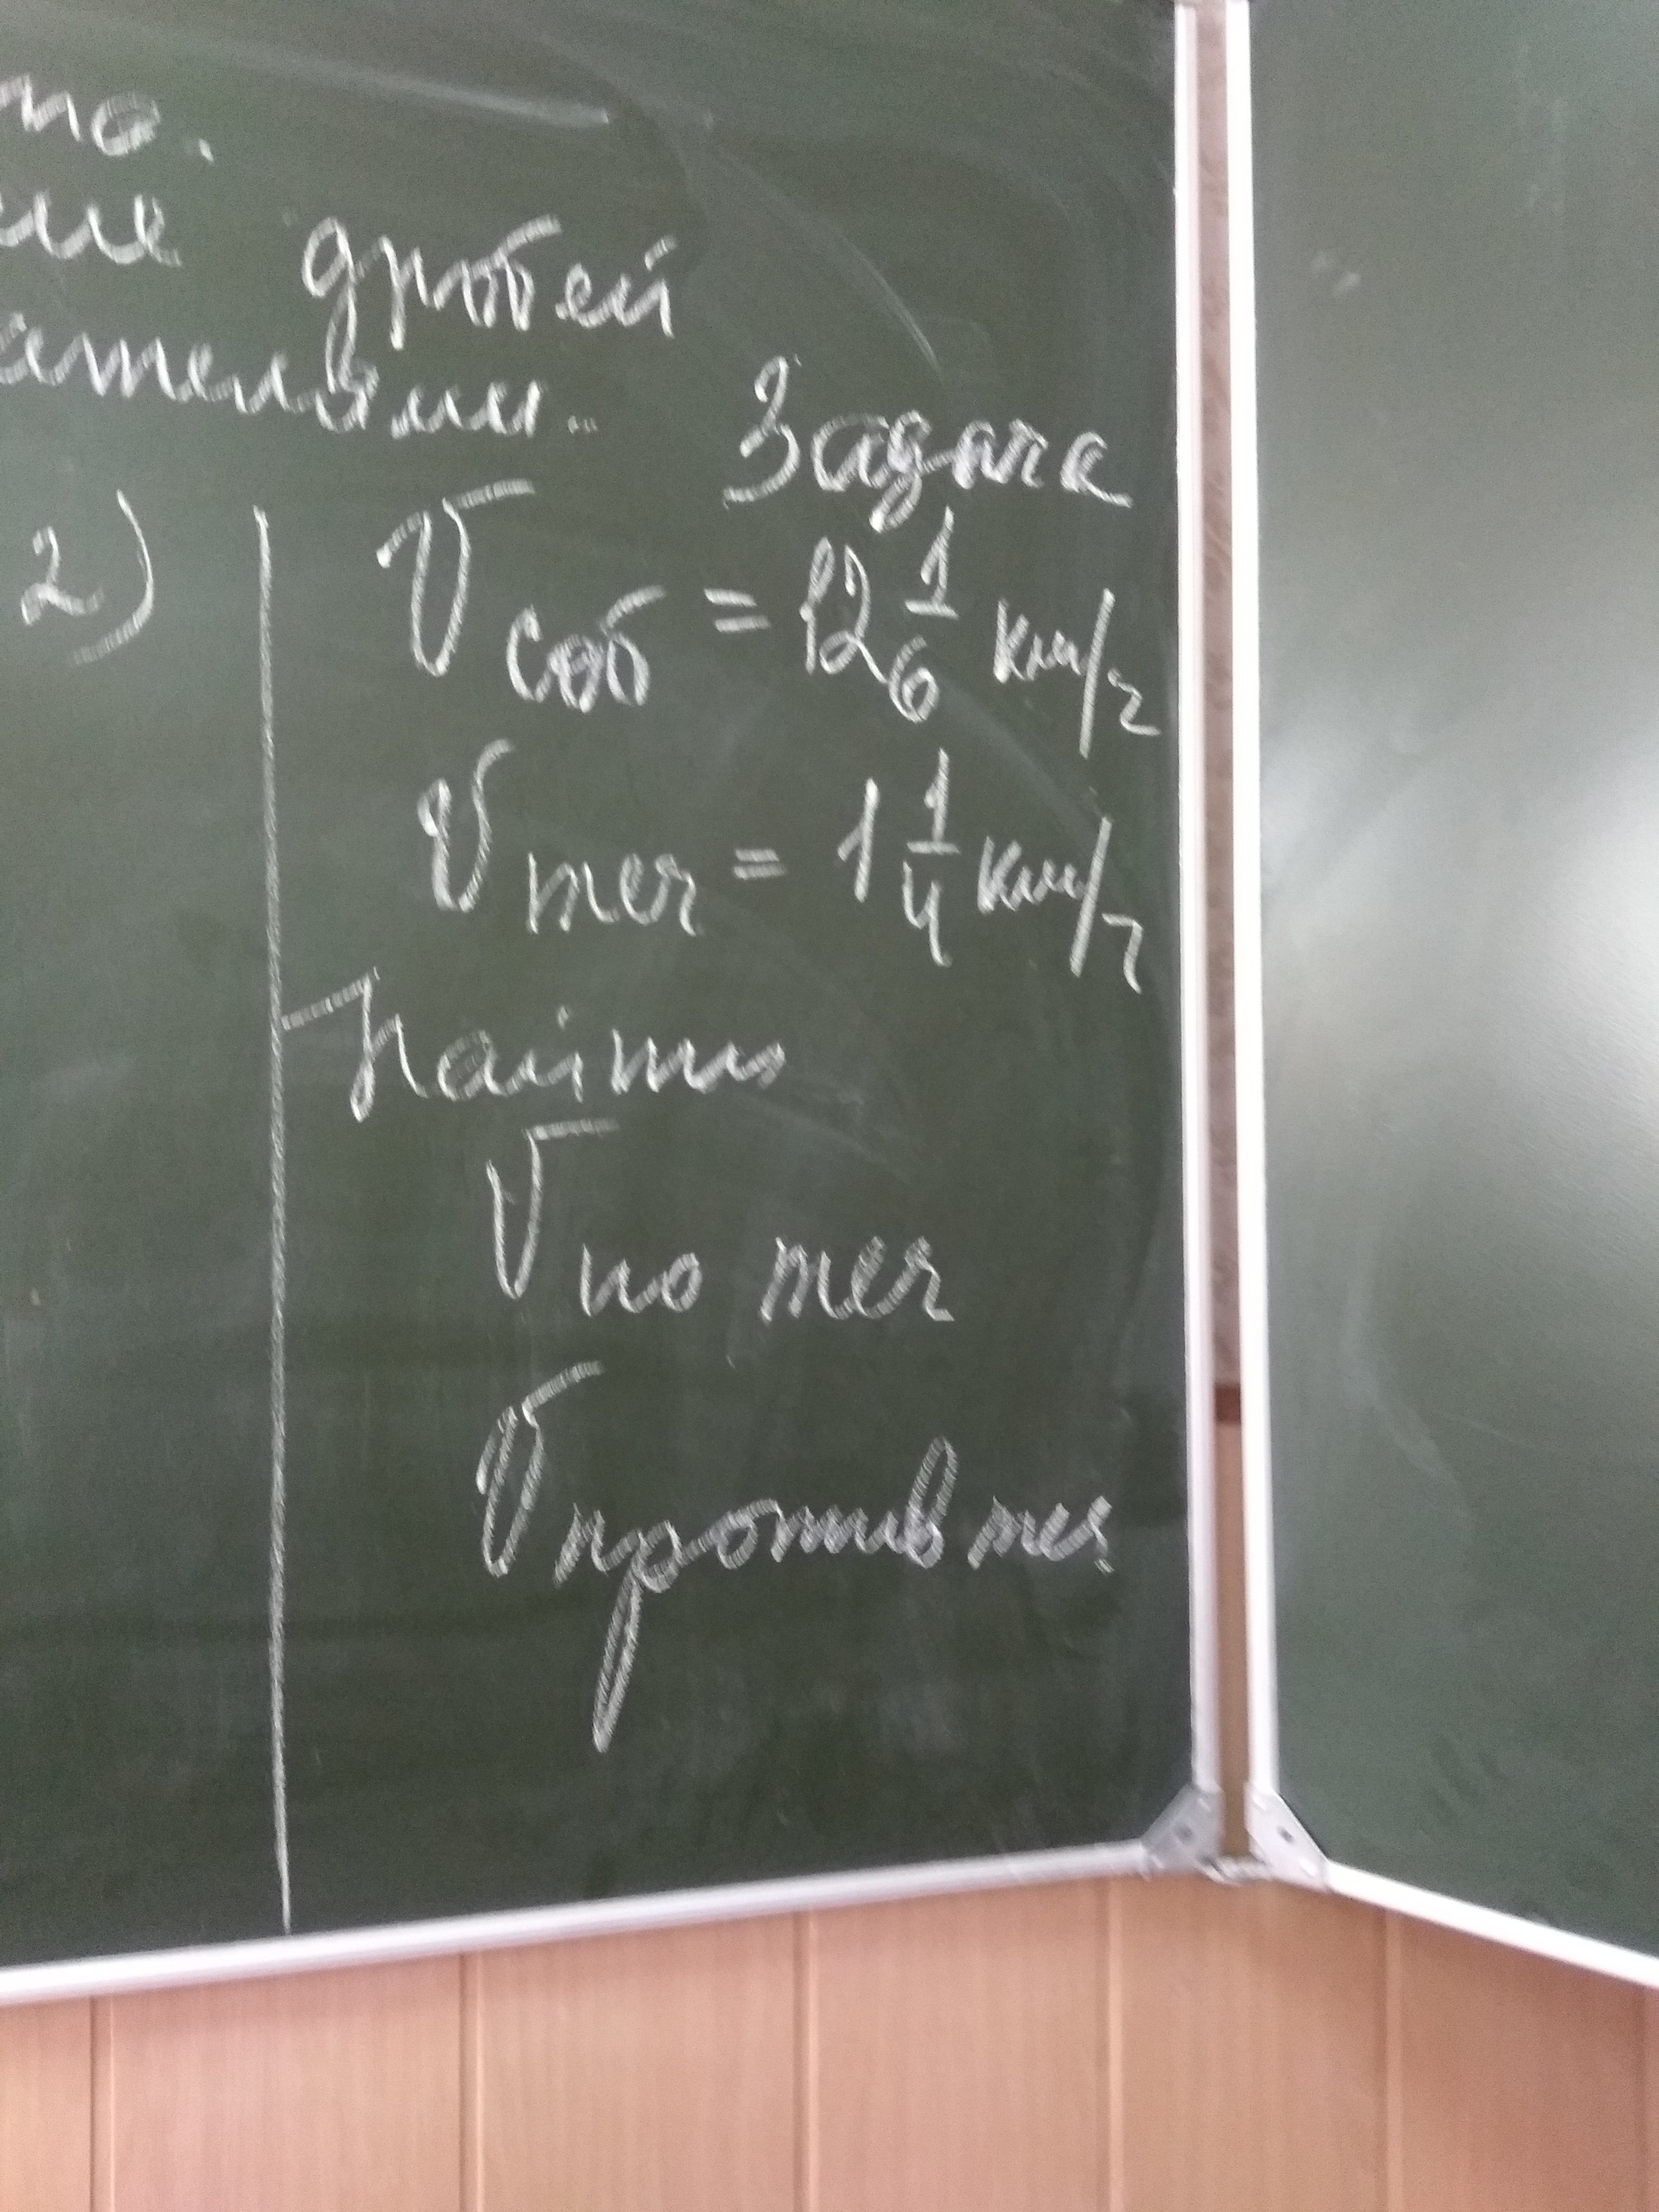 дробей
Задача
2)
V соб = 12 1/6 км/ч
V теч = 1 1/4 км/ч
Найти
V по теч
V против теч